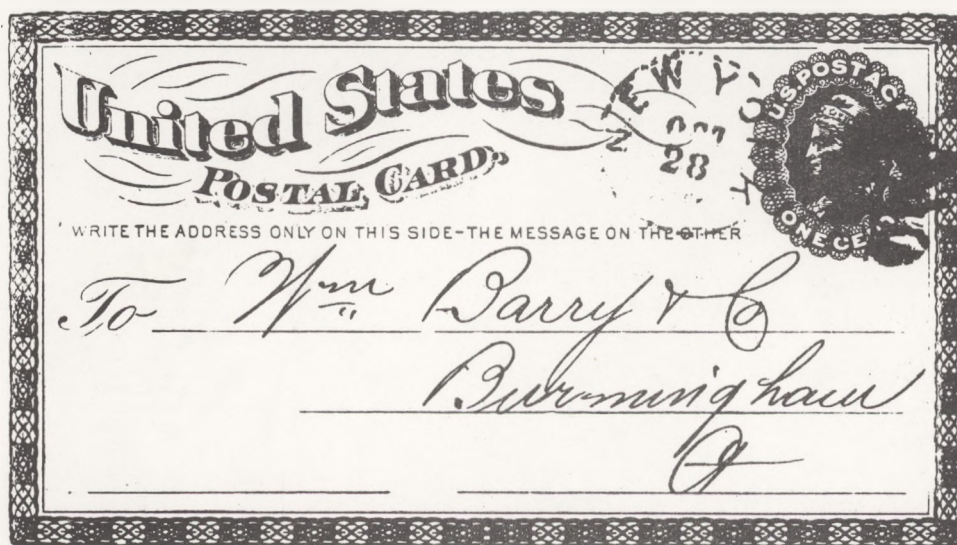 United States
POSTAL CARD.
NEW YORK
OCT
28
U.S. POSTAGE
ONE CE
WRITE THE ADDRESS ONLY ON THIS SIDE-THE MESSAGE ON THE OTHER
To Wm Barry & Co
Burmingham
Ct